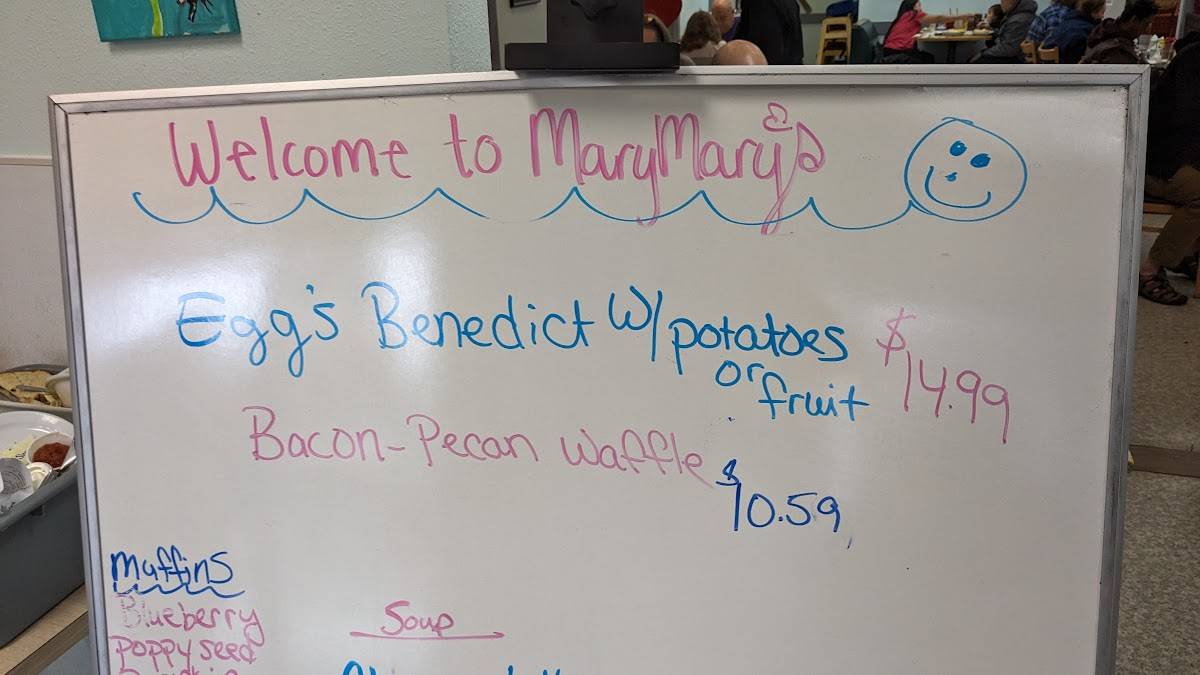 Welcome to MaryMary's
Egg's Benedict w/ potatoes
or fruit
$14.99
Bacon-Pecan waffle
$10.59
Muffins
Blueberry
Poppy seed
Soup